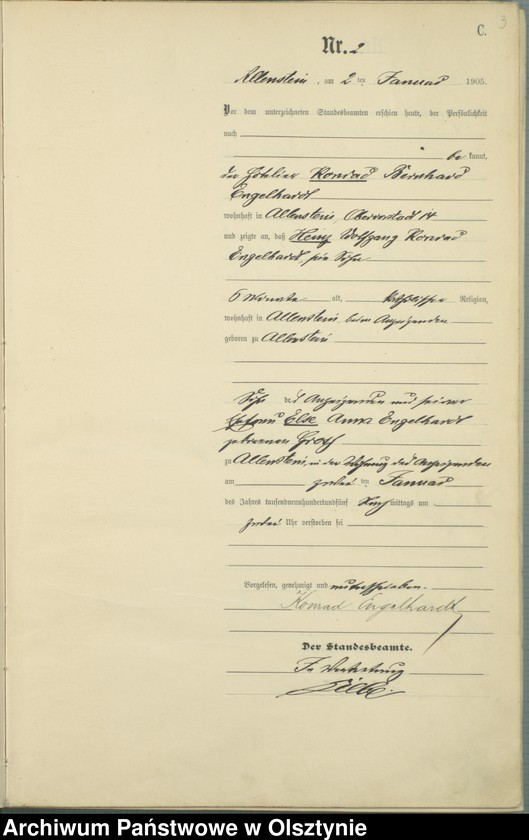 3
C.
Nr. 2
Allenstein, am 2 ten Januar 1905.
Vor dem unterzeichneten Standesbeamten erschien heute, der Persönlichkeit
nach
be kannt,
der Hotelier Konrad Bernhard
Engelhardt
wohnhaft in Allenstein, Obervorstadt 14
und zeigte an, daß Heinz Wolfgang Konrad
Engelhardt, sein Sohn
6 Monate alt, katholischer Religion,
wohnhaft in Allenstein, beim Anzeigenden
geboren zu Allenstein
Sohn des Anzeigenden und seiner
Ehefrau Else Anna Engelhardt
geborenen Groß
zu Allenstein, in der Wohnung des Anzeigenden
am zweiten Januar
des Jahres tausendneunhundertfünf Nachmittags um
zwei Uhr verstorben sei
Vorgelesen, genehmigt und unterschrieben.
Konrad Engelhardt
Der Standesbeamte.
In Vertretung
Archiwum Państwowe w Olsztynie